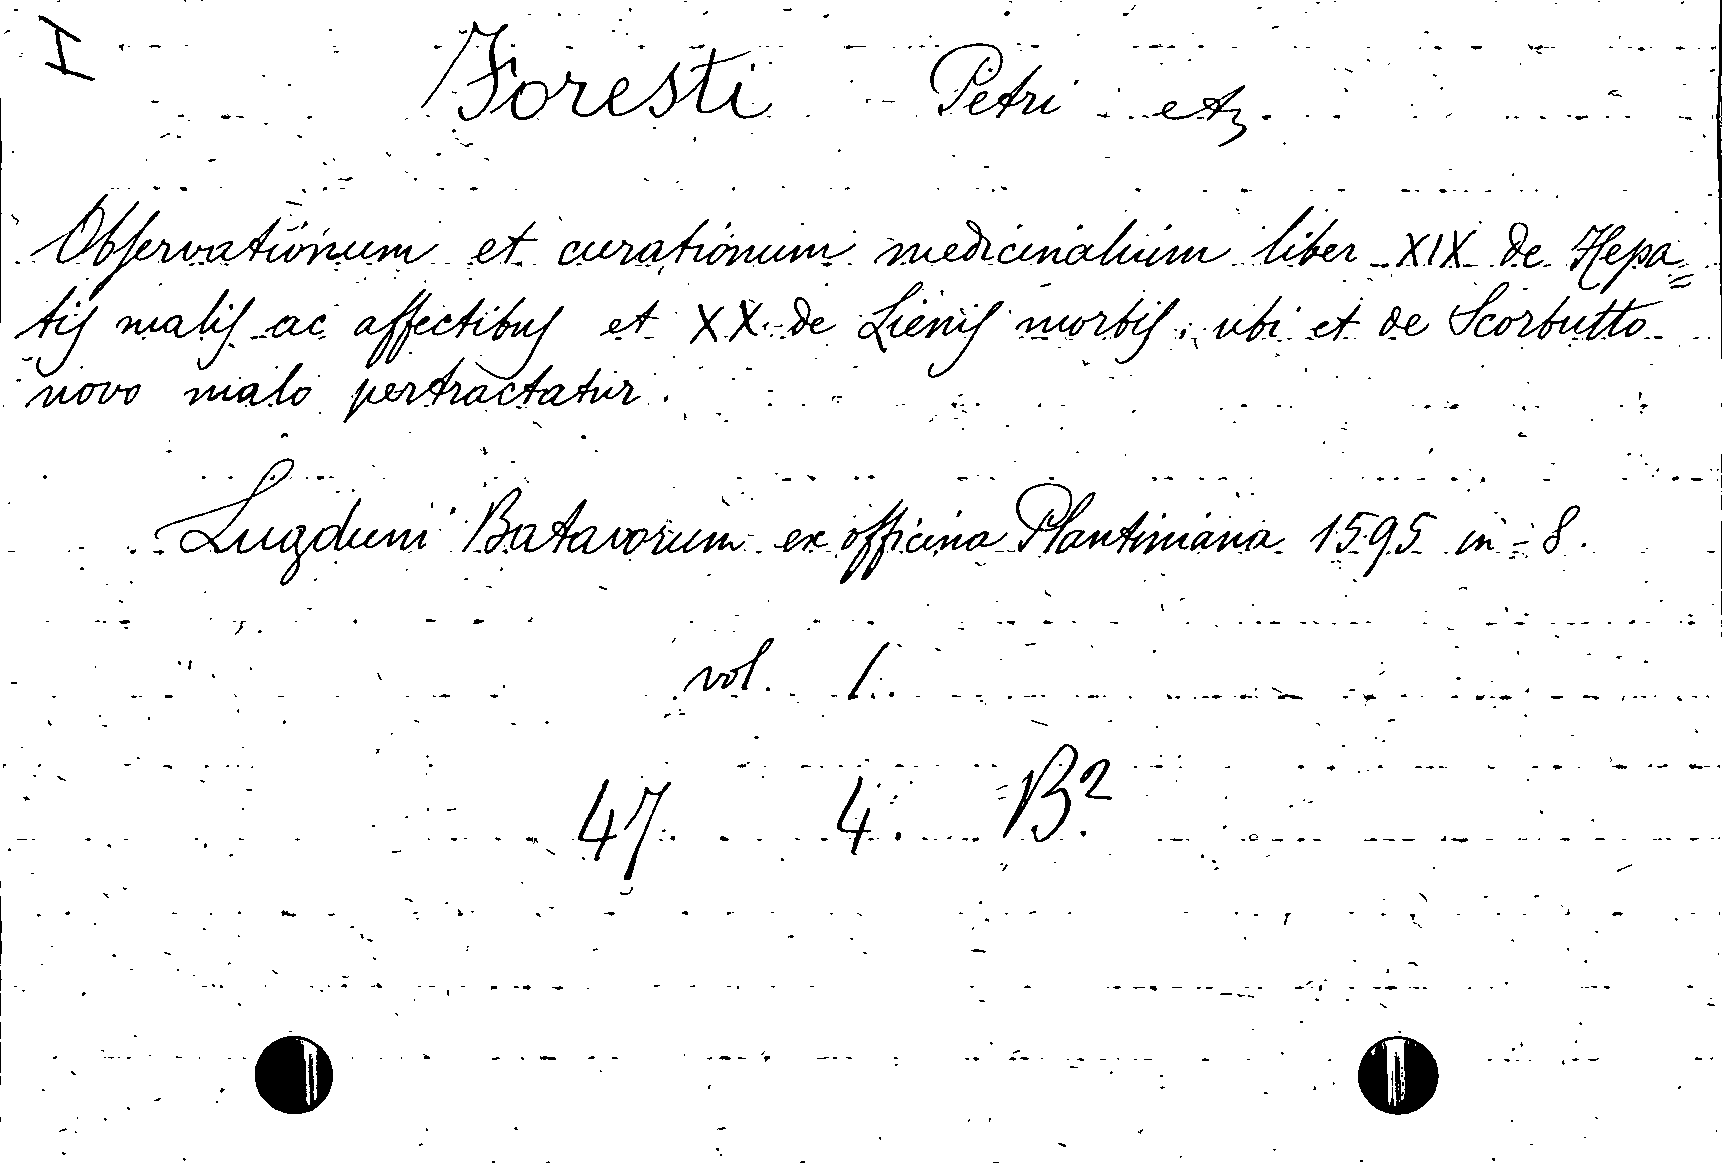 I
Foresti Petri etz.
Observationum et curationum medicinalium liber XIX de Hepa=
tis malis ac affectibus et XX de Lienis morbis, ubi et de Scorbutto
novo malo pertractatur.
Lugduni Batavorum ex officina Plantiniana 1595 in-8.
vol. 1.
47. 4. B2.